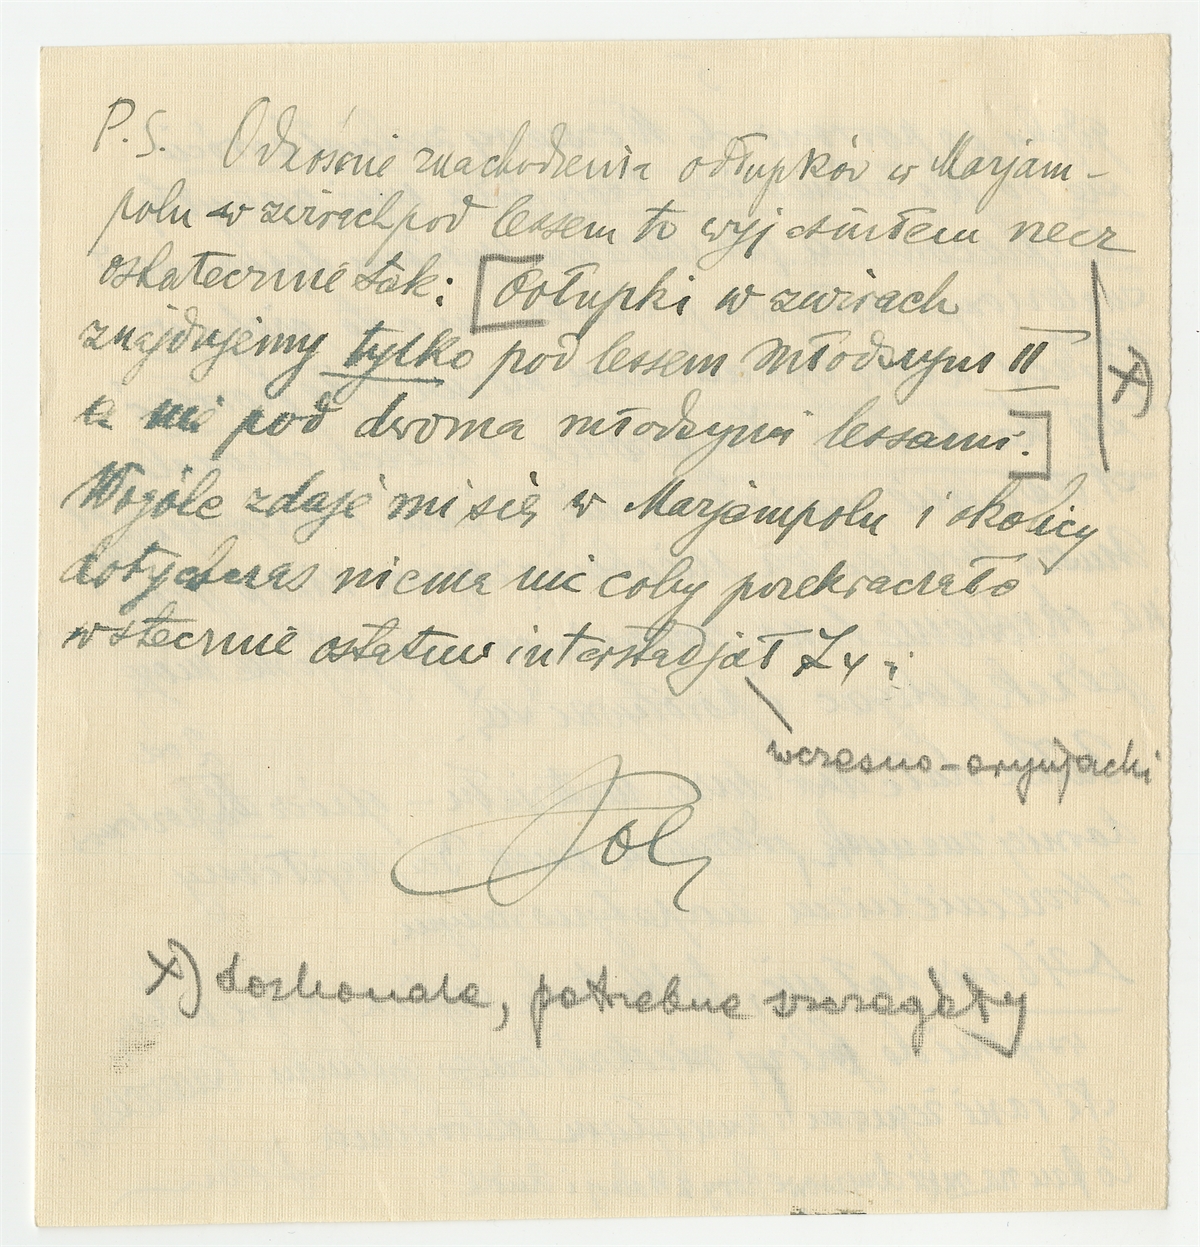 P.S. Odnośnie znachodzenia odłupków w Marjam-
polu w żwirach pod lessem to wyjaśniłem rzecz
ostatecznie tak: [Odłupki w żwirach
znajdujemy tylko pod lessem młodszym II
a nie pod dwoma młodszymi lessami.]
x)
Wogóle zdaje mi się, w Marjampolu i okolicy
dotychczas niema nic coby przekraczało
wstecznie ostatni interstadjał
wczesno-oryniacki
Pol
x) doskonale, potrzebne szczegóły